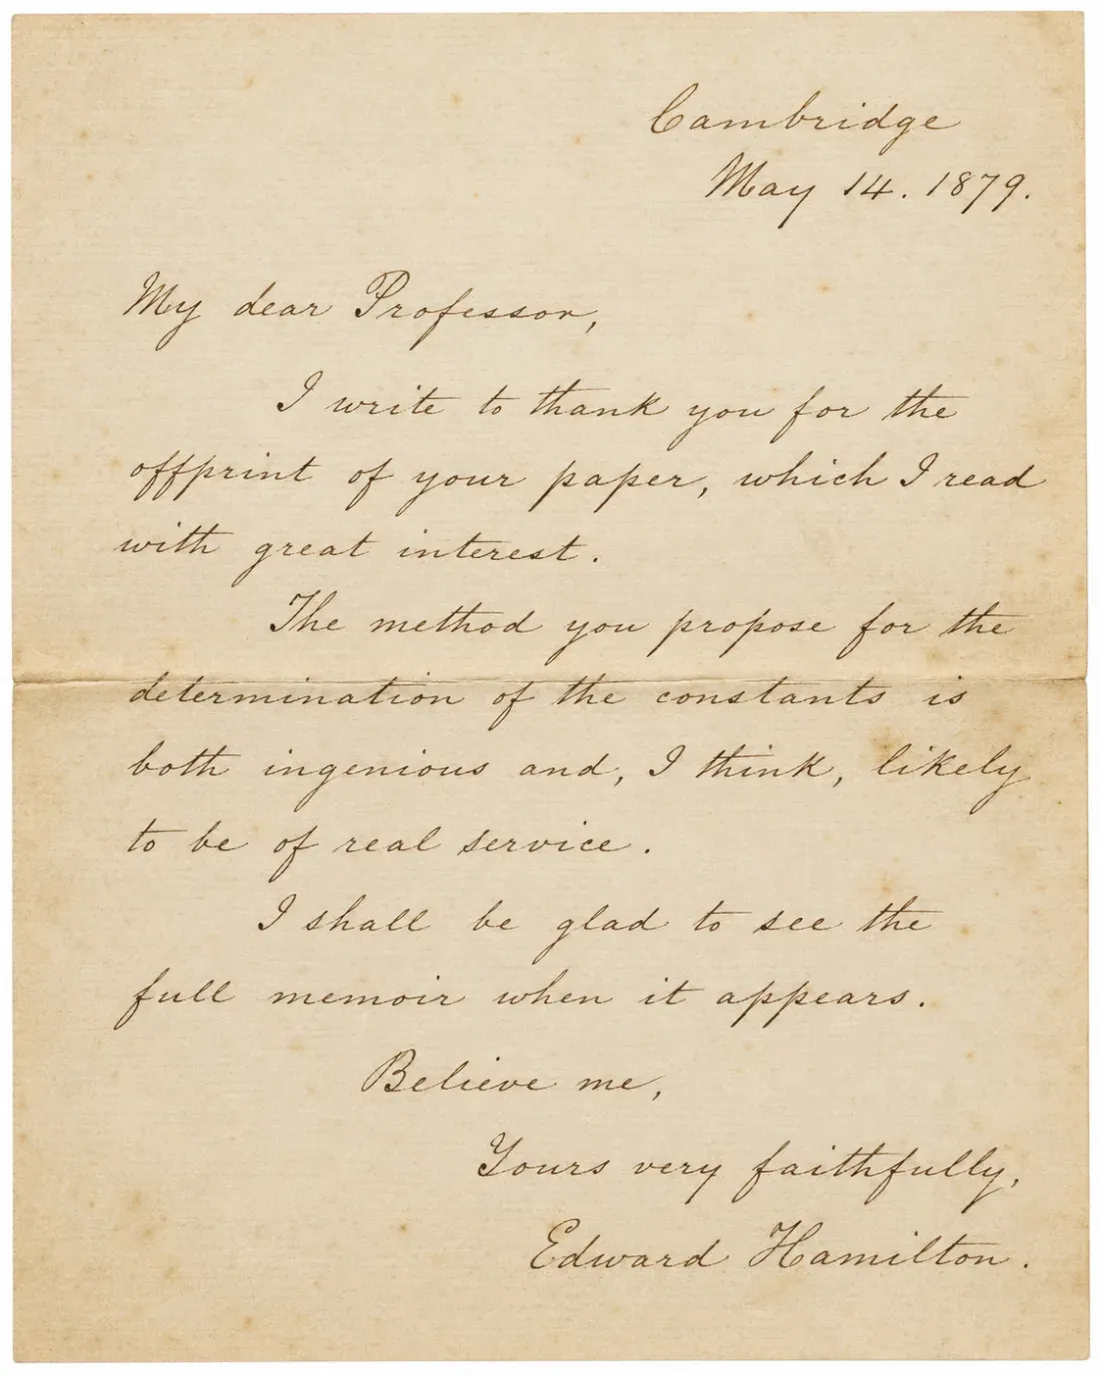 Cambridge
May 14. 1879.
My dear Professor,
I write to thank you for the
offprint of your paper, which I read
with great interest.
The method you propose for the
determination of the constants is
both ingenious and, I think, likely
to be of real service.
I shall be glad to see the
full memoir when it appears.
Believe me,
Yours very faithfully,
Edward Hamilton.